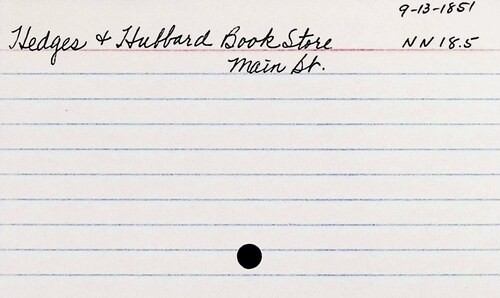 9-13-1851
Hedges & Hubbard Book Store NN 18.5
Main St.